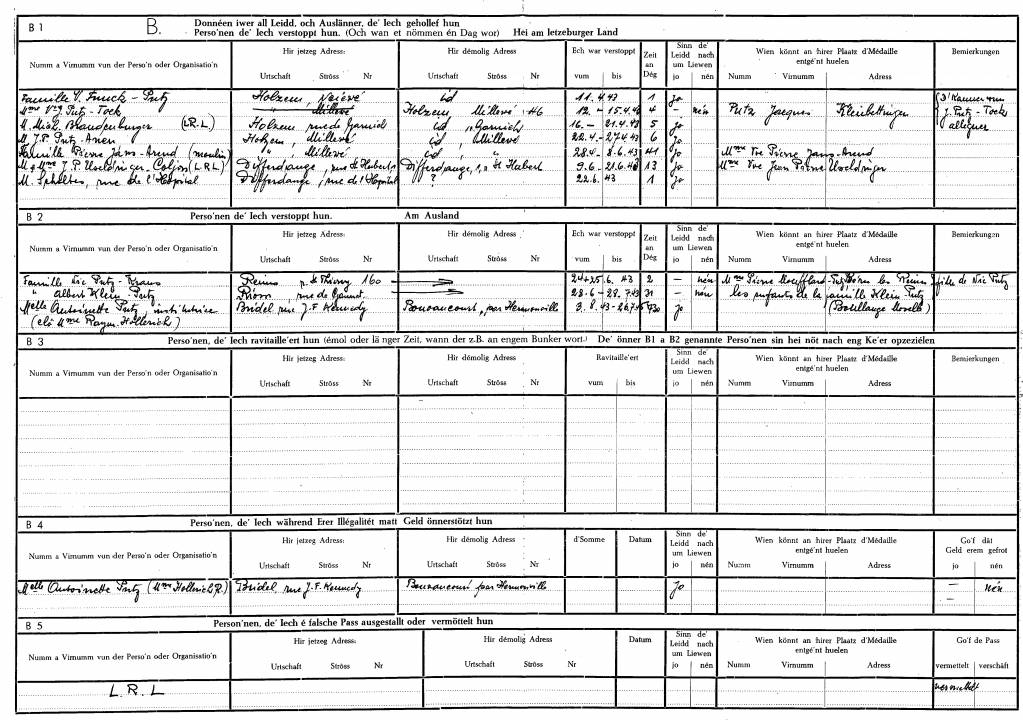 B 1 B. Donnéen iwer all Leidd, och Auslänner, de' Iech gehollef hun
Perso'nen de' Iech verstoppt hun. (Och wan et nömmen én Dag wor) Hei am letzeburger Land
Numm a Virnumm vun der Perso'n oder Organisatio'n
Hir jetzeg Adress:
Urtschaft Ströss Nr
Hir démolig Adress
Urtschaft Ströss Nr
Ech war verstoppt
vum bis
Zeit an Dég
Sinn de' Leidd nach um Liewen
jo nén
Wien könnt an hirer Plaatz d'Médaille entgé'nt huelen
Numm Virnumm Adress
Bemierkungen
Famille V. Funck - Putz Holzem, id 11.4.43 1 Jo
Mme Vve Putz-Tock " Millevé Holzem Millevé H6 12.-15.4.43 4 - nén Putz Jacques Kleinbettingen
M. Mich. Brandenburger (L.R.L) Holzem rue de Garnich id "Garnich 16.-21.4.43 5 Jo
M. J.P. Putz- Holzem, Millevé id, Millevé 22.4-27.4.43 6 Jo
Famille Pierre Jans-Arend (moulin) " Millevé id " 28.4-8.6.43 41 Jo Mme Vve Pierre Jans-Arend
M & Mme J.P. (L.R.L) Differdange, rue St Hubert Differdange, " St Hubert 9.6-21.6.43 13 Jo Mme Vve Jean Pierre
M. rue de l'Hôpital Differdange, rue de l'Hôpital ? 22.6.43 1 Jo
B 2 Perso'nen de' Iech verstoppt hun. Am Ausland
Numm a Virnumm vun der Perso'n oder Organisatio'n
Hir jetzeg Adress:
Urtschaft Ströss Nr
Hir démolig Adress
Urtschaft Ströss Nr
Ech war verstoppt
vum bis
Zeit an Dég
Sinn de' Leidd nach um Liewen
jo nén
Wien könnt an hirer Plaatz d'Médaille entgé'nt huelen
Numm Virnumm Adress
Bemierkungen
Famille Nic Putz - Kraus Reims r. St Thierry 160 24+25.6.43 2 - nén Mme Pierre les Reims fille de Nic Putz
" Albert Klein-Putz 28.6-28.7.43 31 - nén les enfants de la famille Klein-Putz
Melle Antoinette Putz institutrice Bridel rue J.F. Kennedy Bouvancourt, par Hermonville 3.8.43- Jo
(elo Mme Raym. Hollerich)
B 3 Perso'nen, de' Iech ravitaille'ert hun (émol oder lä nger Zeit, wann der z.B. an engem Bunker wort.) De' önner B1 a B2 genannte Perso'nen sin hei nöt nach eng Ke'er opzeziélen
Numm a Virnumm vun der Perso'n oder Organisatio'n
Hir jetzeg Adress:
Urtschaft Ströss Nr
Hir démolig Adress
Urtschaft Ströss Nr
Ravitaille'ert
vum bis
Sinn de' Leidd nach um Liewen
jo nén
Wien könnt an hirer Plaatz d'Médaille entgé'nt huelen
Numm Virnumm Adress
Bemierkungen
B 4 Perso'nen, de' Iech während Erer Illégalitét matt Geld önnerstötzt hun
Numm a Virnumm vun der Perso'n oder Organisatio'n
Hir jetzeg Adress:
Urtschaft Ströss Nr
Hir démolig Adress
Urtschaft Ströss Nr
d'Somme Datum
Sinn de' Leidd nach um Liewen
jo nén
Wien könnt an hirer Plaatz d'Médaille entgé'nt huelen
Numm Virnumm Adress
Go'f dât Geld erem gefrot
jo nén
Melle Antoinette Putz (Mme Hollerich R.) Bridel, rue J.F. Kennedy Bouvancourt par Hermonville Jo - nén
-
B 5 Person'nen, de' Iech é falsche Pass ausgestallt oder vermöttelt hun
Numm a Virnumm vun der Perso'n oder Organisatio'n
Hir jetzeg Adress:
Urtschaft Ströss Nr
Hir démolig Adress
Urtschaft Ströss Nr
Datum
Sinn de' Leidd nach um Liewen
jo nén
Wien könnt an hirer Plaatz d'Médaille entgé'nt huelen
Numm Virnumm Adress
Go'f de Pass
vermettelt verschäft
L.R.L vermettelt